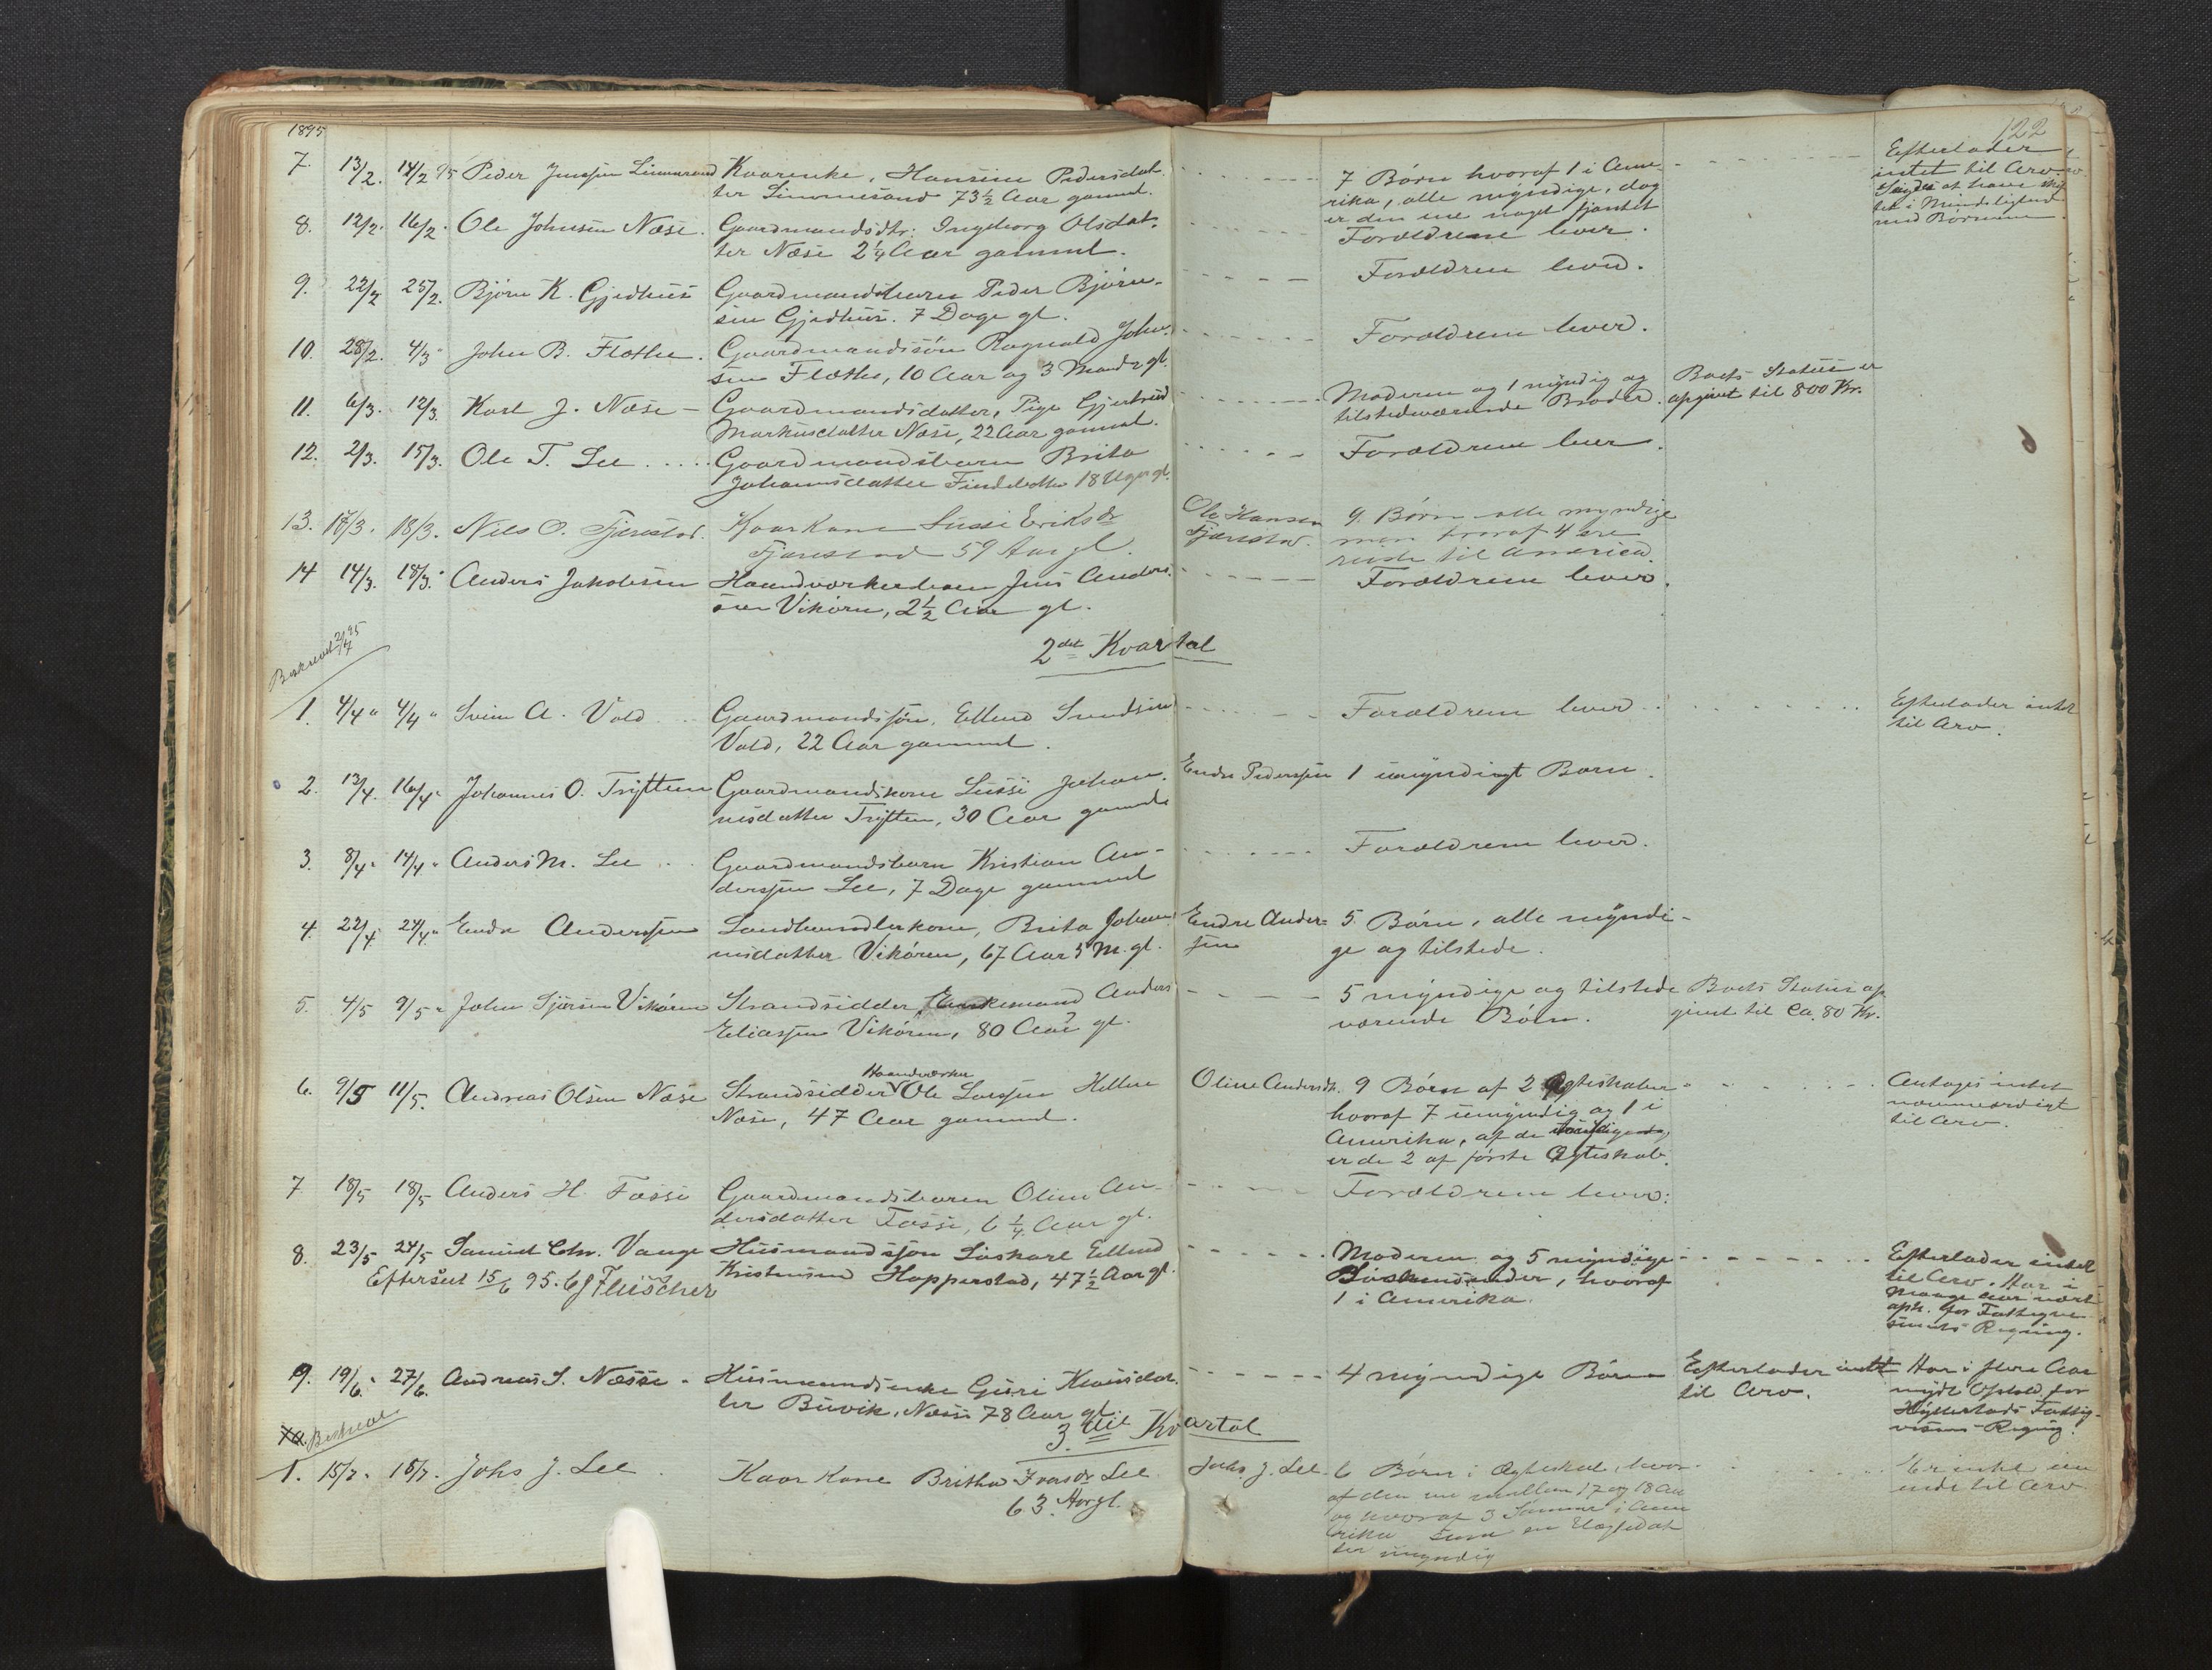 1895
122
7. 13/2. 14/2 95 Peder Jensen Kaarenke, Hansine Pedersdat-
ter 73½ Aar gammel.
7 Børn hvoraf 1 i Ame-
rika, alle myndige, dog
er den ene noget
Efterlader
intet til Arv
med Børnene
8. 12/2. 16/2. Ole Johnsen Næse. Gaardmandsdtr. Ingeborg Olsdat-
ter Næse 2¼ Aar gammel.
Forældrene lever.
9. 22/2 25/2. Bjørn K. Gjedhus Gaardmandsbarn Peder Bjørn-
sen Gjedhus. 7 Dage gl.
Forældrene lever.
10. 28/2. 4/3 John B. Flæthe. Gaardmandssøn Ragnald John-
sen Flæthe, 10 Aar og 3 Maandr gl.
Forældrene lever.
11. 6/3. 12/3. Karl J. Næse - Gaardmandsdatter, Pige Gjertrud
Markusdatter Næse, 22 Aar gammel.
Moderen og 1 myndig og
tilstedeværende Broder.
Boets Status er
opgivet til 800 Kr.
12. 2/3. 15/3. Ole T. Lee ..... Gaardmandsbarn Brita
Johannesdatter 18 Uger gl.
Forældrene lever.
13. 17/3. 18/3. Nils O. Fjærestad. Kaarkone Sussi Eriksdr
Fjærestad 59 Aar gl.
Ole Hansen
Fjærestad.
9 Børn alle myndige
men hvoraf 4 ere
reiste til America.
14 14/3. 18/3. Anders Jakobsen Haandværkerbarn Jens Anders-
sen Vikøren, 2½ Aar gl.
Forældrene lever.
Beskrevet 2/4 95
2det Kvartal
1. 4/4 " 4/4 " Svein A. Vold Gaardmandssøn, Ellend Svendsen
Vold, 22 Aar gammel.
Forældrene lever
Efterlader intet
til Arv.
2. 13/4. 16/4 " Johannes O. Tryften Gaardmandskone Sussi Johan-
nesdatter Tryften, 30 Aar gammel
Endre Pedersen 1 umyndigt Barn.
3. 8/4 " 14/4 " Anders M. Lee Gaardmandsbarn Kristian An-
dersen Lee, 7 Dage gammel
Forældrene lever.
4. 22/4 24/4 " Endre Anderssen Landhandlerkone, Brita Johan-
nesdatter Vikøren, 67 Aar 5 M. gl.
Endre Anders-
sen
5. Børn, alle myndi-
ge og tilstede.
5. 4/5 9/5 " John Sjursen Vikøren Strandsidder, Enkemand Anders
Eliassen Vikøren, 80 Aar gl.
5 myndige og tilstede
værende Børn.
Boets Status op
givet til Ca. 80 Kr.
6. 9/5 11/5. Andreas Olsen Næse Strandsidder Haandværker Ole Larssen Hellene
Næse, 47 Aar gammel.
Oline Andersdt. 9 Børn af 2 Ægteskaber
hvoraf 7 umyndig og 1 i
Amerika, af de
er de 2 af første Ægteskab.
Antages intet
nævneværdigt
til Arv.
7 18/5 18/5 Anders H. Fosse Gaardmandsbarn Oline An-
dersdatter Fosse, 6 ¼ Aar gl.
Forældrene lever.
8. 23/5 24/5 Samuel Chr. Vange Husmandssøn Løskarl Ellend
Kristensen Hopperstad, 47½ Aar gl.
Efterseet 15/6 95. Fleischer
Moderen og 5 myndige
Sødskende, hvoraf
1 i Amerika.
Efterlader intet
til Arv. Har i
Mange Aar været
oph. for Fattigvæ-
senets Regning.
9. 19/6. 27/6. Andreas J. Næsse - Husmandsenke Guri Knutsdat-
ter Buvik, Næsse 78 Aar gl.
4 myndige Børn
Efterlader intet
til Arv.
Har i flere Aar
nydt Ophold for
Fattig-
væsens Regning.
Beskrevet
3die Kvartal
1. 15/7. 18/7. Johs J. Lee Kaarkone Britha Ivarsdr Lee
63 Aar gl.
Johs. J. Lee
6 Børn i Ægteskab, hvor-
af den ene mellem 17 og 18 Aar
og hvoraf 3 Sønner i Ame
rika samt en
ter myndig
Er intet
til Arv.